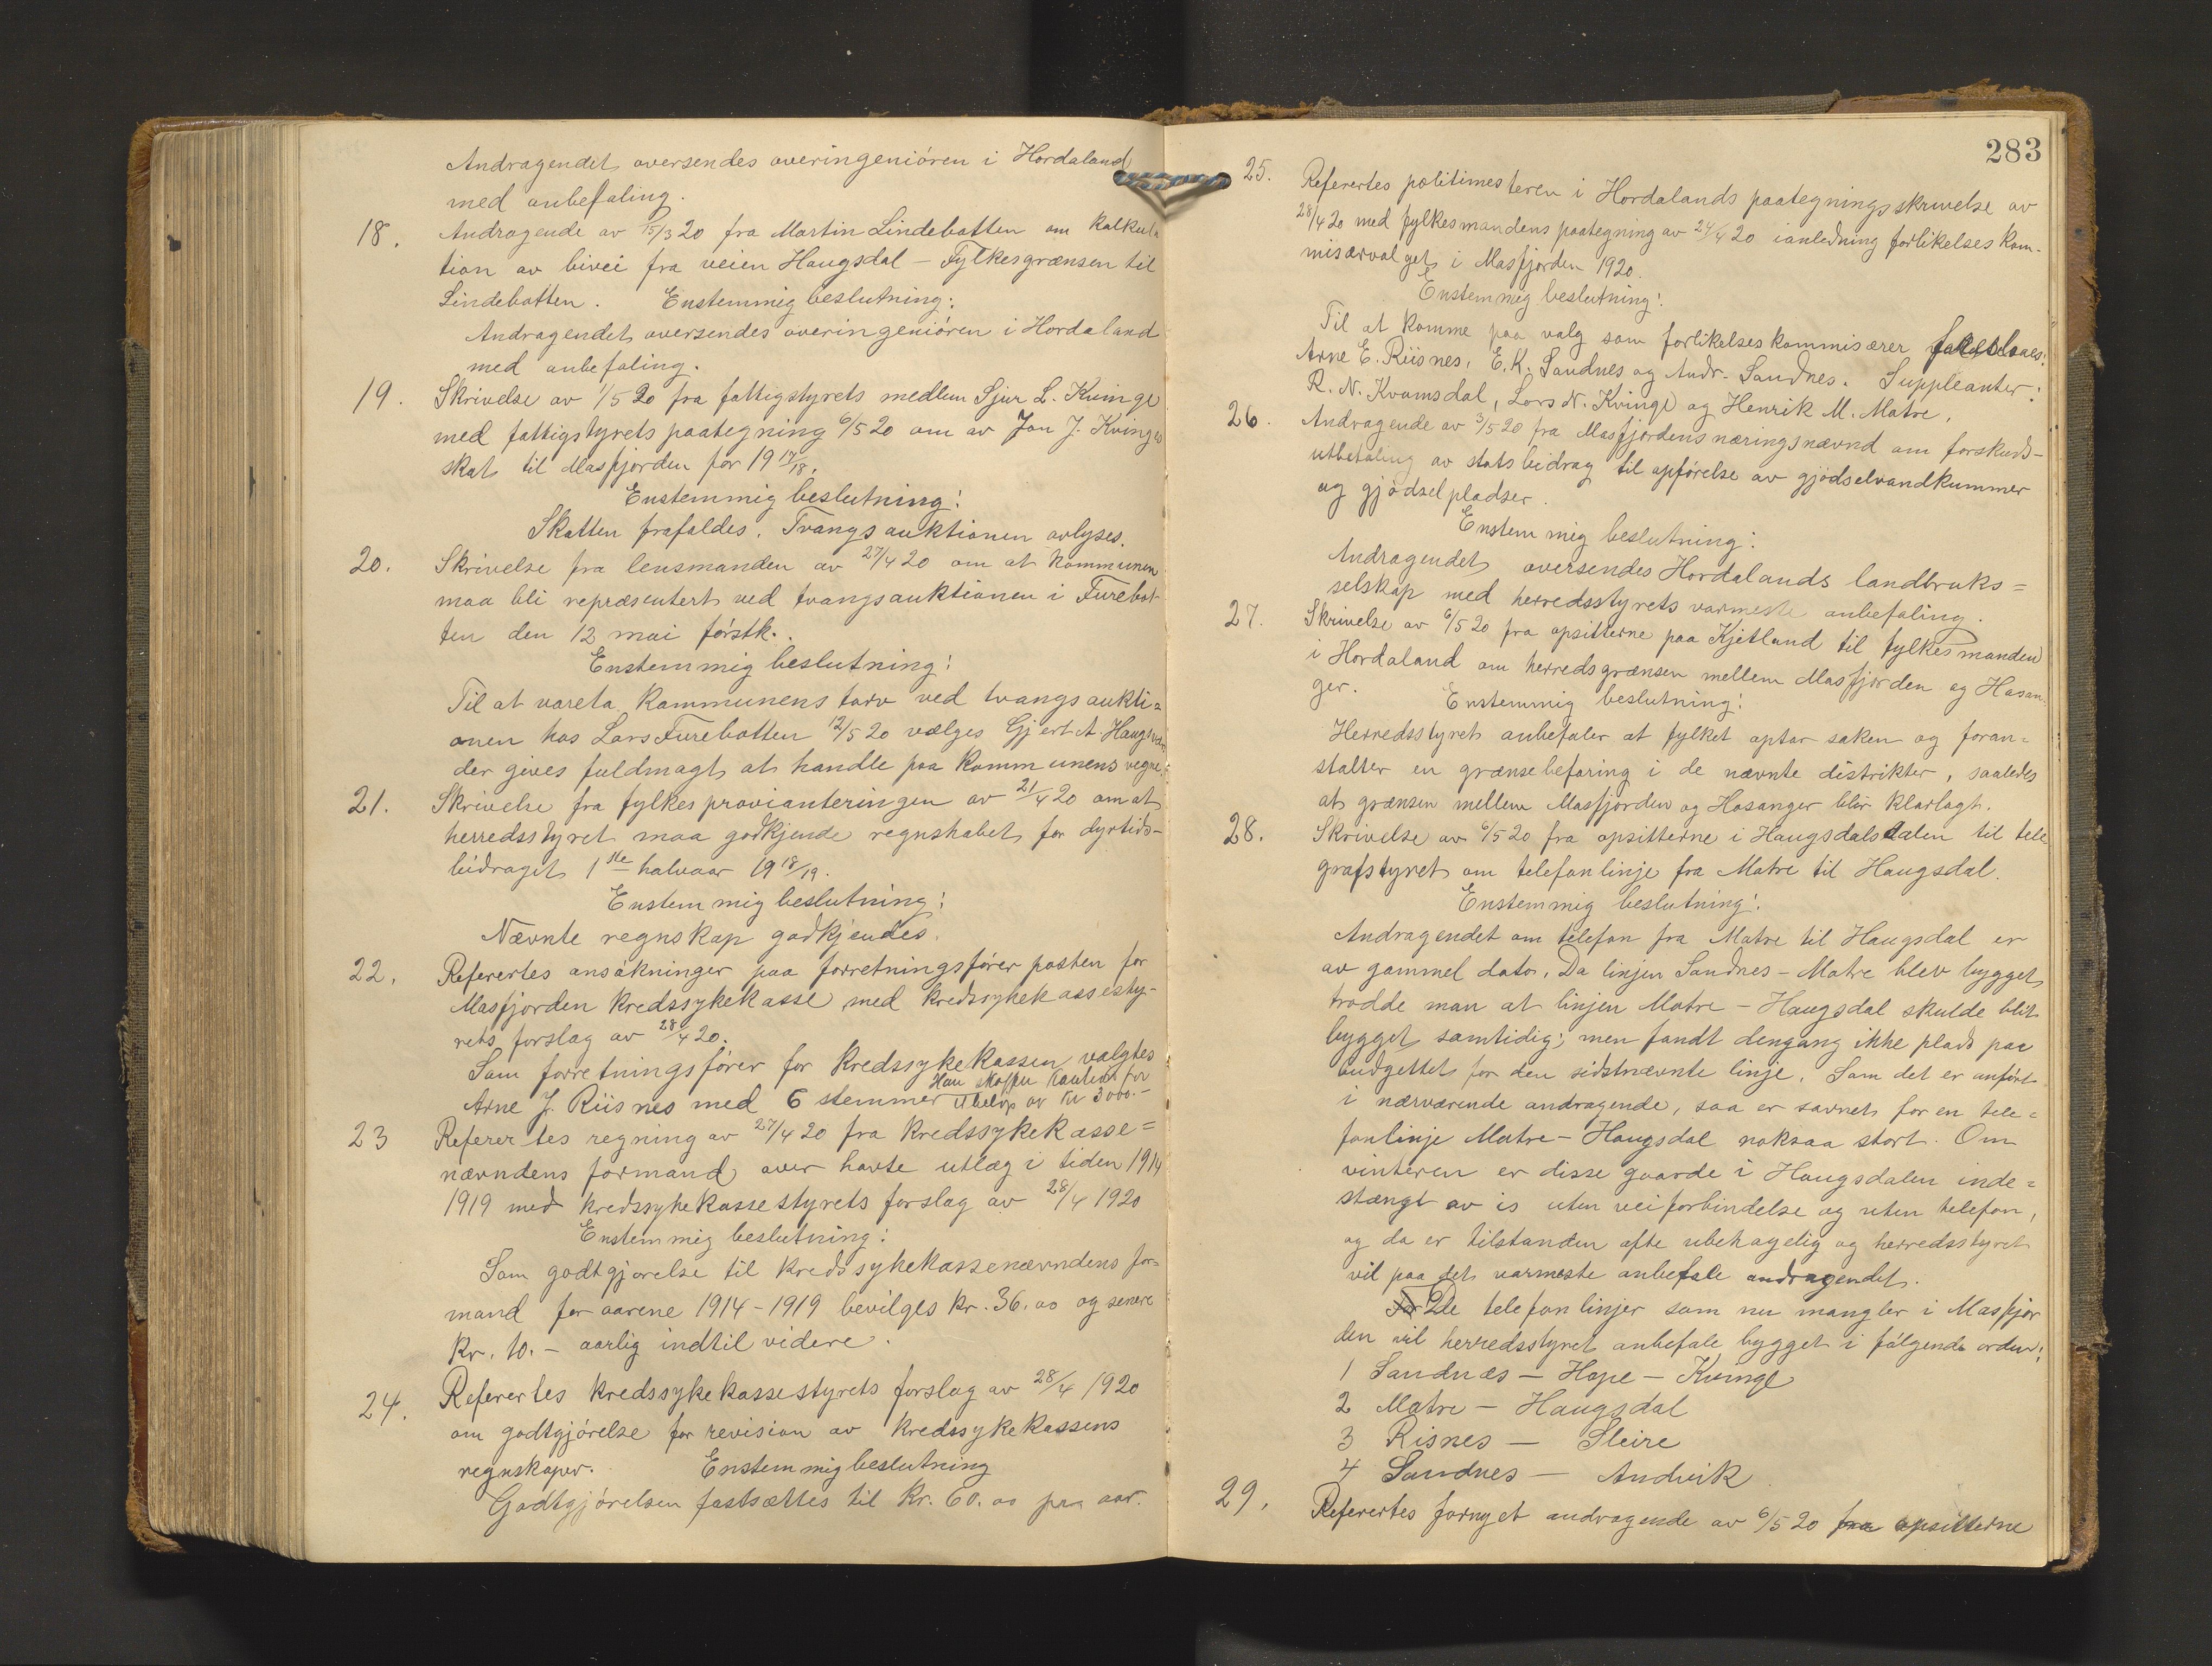 Andragendet oversendes overingeniören i Hordaland
med anbefaling.
18. Andragende av 15/3 20 fra Martin Lindebotten om kalkula
tion av bivei fra veien Haugsdal - Fylkesgrænsen til
Lindebotten. Enstemmig beslutning:
Andragendet oversendes overingeniören i Hordaland
med anbefaling.
19. Skrivelse av 1/5 20 fra fattigstyrets medlem Sjur L. Kvinge
med fattigstyrets paategning 6/5 20 om av Jon J. Kvinges
skat til Masfjorden for 19 17/18.
Enstemmig beslutning:
Skatten frafaldes. Tvangsauktionen avlyses.
20. Skrivelse fra lensmanden av 27/4 20 om at kommunen
maa bli repræsentert ved tvangsauktionen i Furebot-
ten den 12 mai förstk.
Enstemmig beslutning:
Til at vareta kommunens tarv ved tvangsaukti-
onen hos Lars Furebotten 12/5 20 vælges Gjert A.
der gives fuldmagt at handle paa kommunens vegne.
21. Skrivelse fra fylkesprovianteringen av 21/4 20 om at
herredsstyret maa godkjende regnskabet for dyrtids-
bidraget 1ste halvaar 19 18/19.
Enstemmig beslutning:
Nævnte regnskap godkjendes.
22. Referertes ansökninger paa forretningsförer posten for
Masfjorden kredssykekasse med kredssykekassesty-
rets forslag av 28/4 20.
Som forretningsförer for kredssykekassen valgtes
Han skaffer kaution for
Arne J. Riisnes med 6 stemmer et belöp av kr 3000.-
23 Referertes regning av 27/4 20 fra kredssykekasse=
nævndens formand over havte utlæg i tiden 1914
1919 med kredssykekassestyrets forslag av 28/4 1920
Enstemmig beslutning:
Som godtgjörelse til kredssykekassenævndens for-
mand for aarene 1914-1919 bevilges kr. 36.00 og senere
kr. 10.- aarlig indtil videre.
24. Referertes kredssykekassestyrets forslag av 28/4 1920
om godtgjörelse for revision av kredssykekassens
regnskaper. Enstemmig beslutning
Godtgjörelsen fastsættes til kr. 60.00 pra aar.
283
25. Referertes politimesteren i Hordalands paategningsskrivelse av
28/4 20 med fylkesmandens paategning av 24/4 20 ianledning forlikelseskom-
misærvalget i Masfjorden 1920.
Enstemmig beslutning:
Til at komme paa valg som forlikelseskommisærer
Arne E. Riisnes, E. K. Sandnes og Andr. Sandnes. Suppleanter:
R. N. Kvamsdal, Lars N. Kvinge og Henrik M. Matre.
26. Andragende av 3/5 20 fra Masfjordens næringsnævnd om forskuds-
utbetaling av statsbidrag til opförelse av gjödselvandkummer
og gjödselpladser.
Enstemmig beslutning:
Andragendet oversendes Hordalands landbruks=
selskap med herredsstyrets varmeste anbefaling.
27. Skrivelse av 6/5 20 fra opsitterne paa Kjetland til fylkesmanden
i Hordaland om herredsgrænsen mellem Masfjorden og Hosan
ger. Enstemmig beslutning:
Herredsstyret anbefaler at fylket optar saken og foran=
stalter en grænsebefaring i de nævnte distrikter, saaledes
at grænsen mellem Masfjorden og Hosanger blir klarlagt.
28. Skrivelse av 6/5 20 fra opsitterne i Haugsdalsdalen til tele
grafstyret om telefonlinje fra Matre til Haugsdal.
Enstemmig beslutning:
Andragendet om telefon fra Matre til Haugsdal er
av gammel dato. Da linjen Sandnes - Matre blev bygget
trodde man at linjen Matre - Haugsdal skulde blit
bygget samtidig; men fandt dengang ikke plads paa
budgettet for den sidstnævnte linje. Som det er anfört
i nærværende andragende, saa er savnet for en tele=
fonlinje Matre - Haugsdal noksaa stort. Om
vinteren er disse gaarde i Haugsdalen inde=
stængt av is uten veiforbindelse og uten telefon,
og da er tilstanden ofte ubehagelig og herredsstyret
vil paa det varmeste anbefale andragendet.
De telefonlinjer som nu mangler i Masfjor
den vil herredsstyret anbefale bygget i fölgende orden:
1 Sandnæs - Hope - Kvinge
2 Matre - Haugsdal
3 Risnes - Sleire
4 Sandnes - Andvik
29. Referertes fornyet andragende av 6/5 20 fra opsitterne